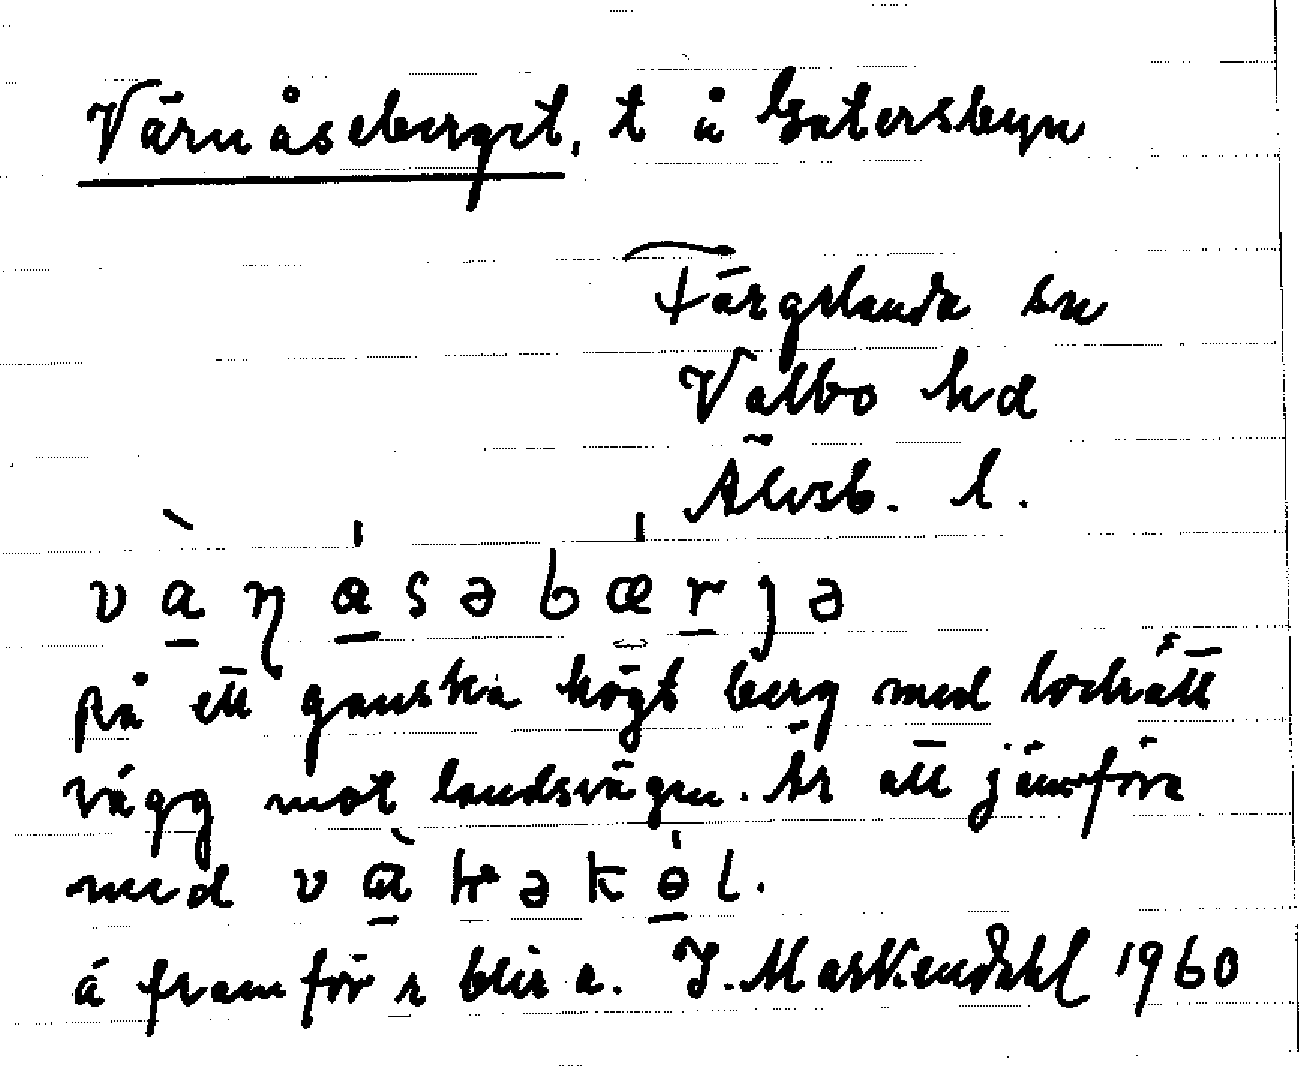 Värnåseberget, t å Gatersbyn
Färgelanda sn
Valbo hd
Älvsb. l.
På ett ganska högt berg med lodrätt
vägg mot landsvägen. Är att jämföra
med
ä framför r blir a. J. Markendahl 1960